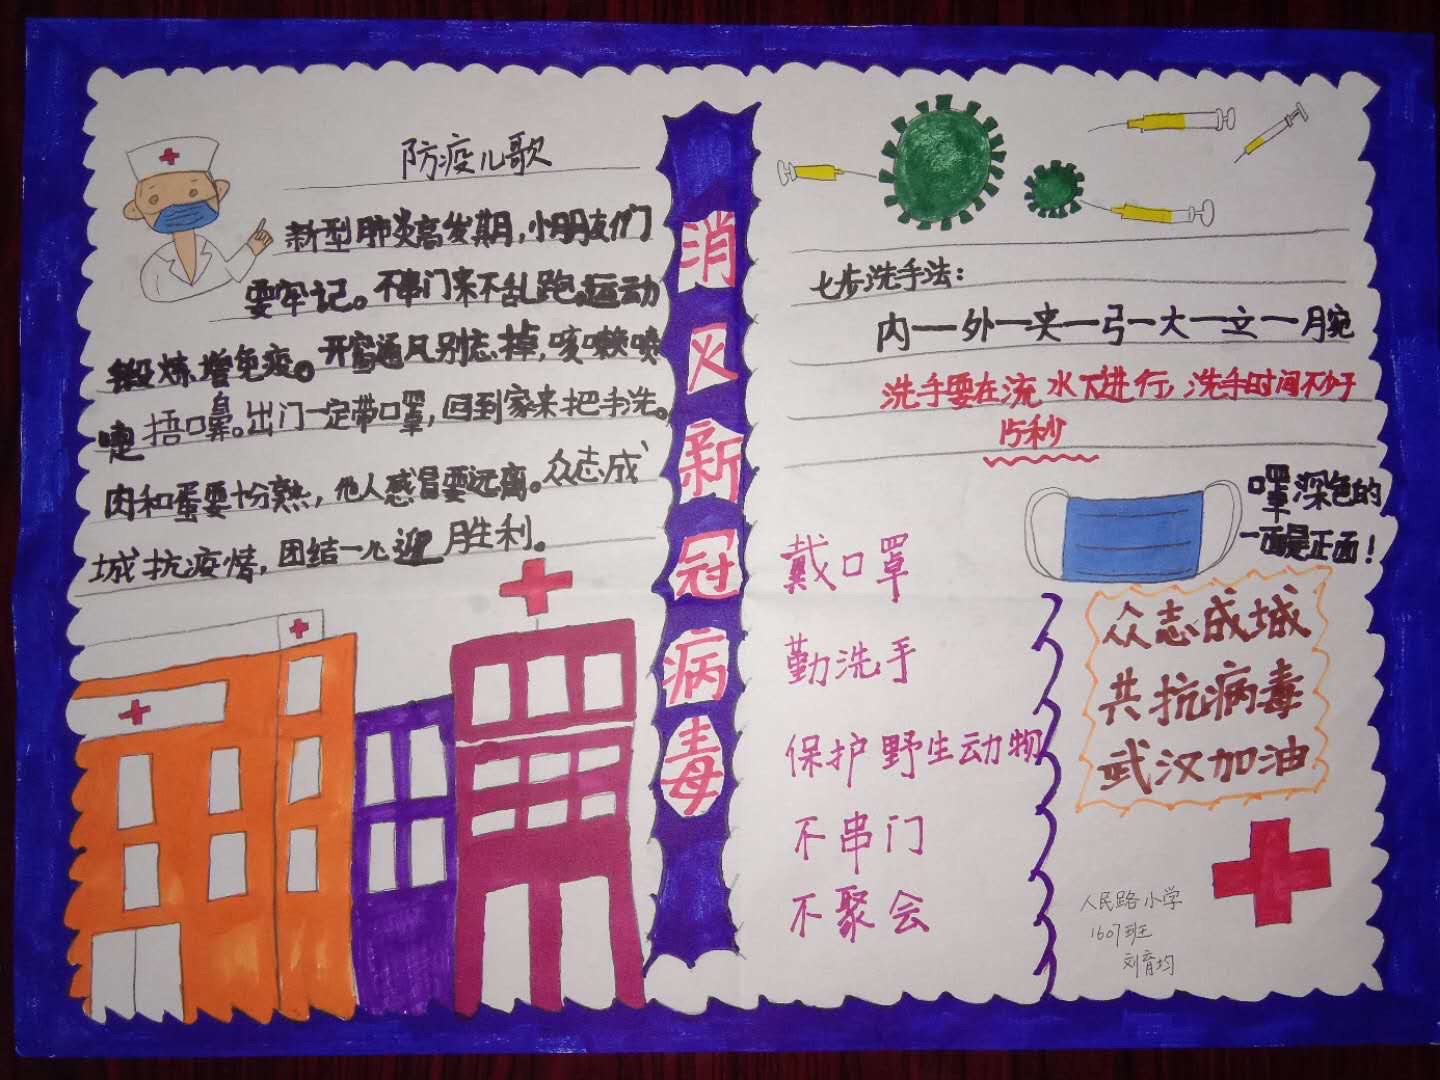 防疫儿歌
新型肺炎高发期，小朋友们
要牢记。不串门来不乱跑。运动
锻炼增免疫。开窗通风别忘掉，咳嗽喷
嚏捂口鼻。出门一定带口罩，回到家来把手洗。
肉和蛋要十份熟，他人感冒要远离。众志成
城抗疫情，团结一心迎胜利。
消灭新冠病毒
七步洗手法：
内一外一夹一弓一大一立一腕
洗手要在流水下进行，洗手时间不少于
15秒
罩深色的
一面是正面！
戴口罩
勤洗手
保护野生动物
不串门
不聚会
众志成城
共抗病毒
武汉加油
人民路小学
1607班
刘育均